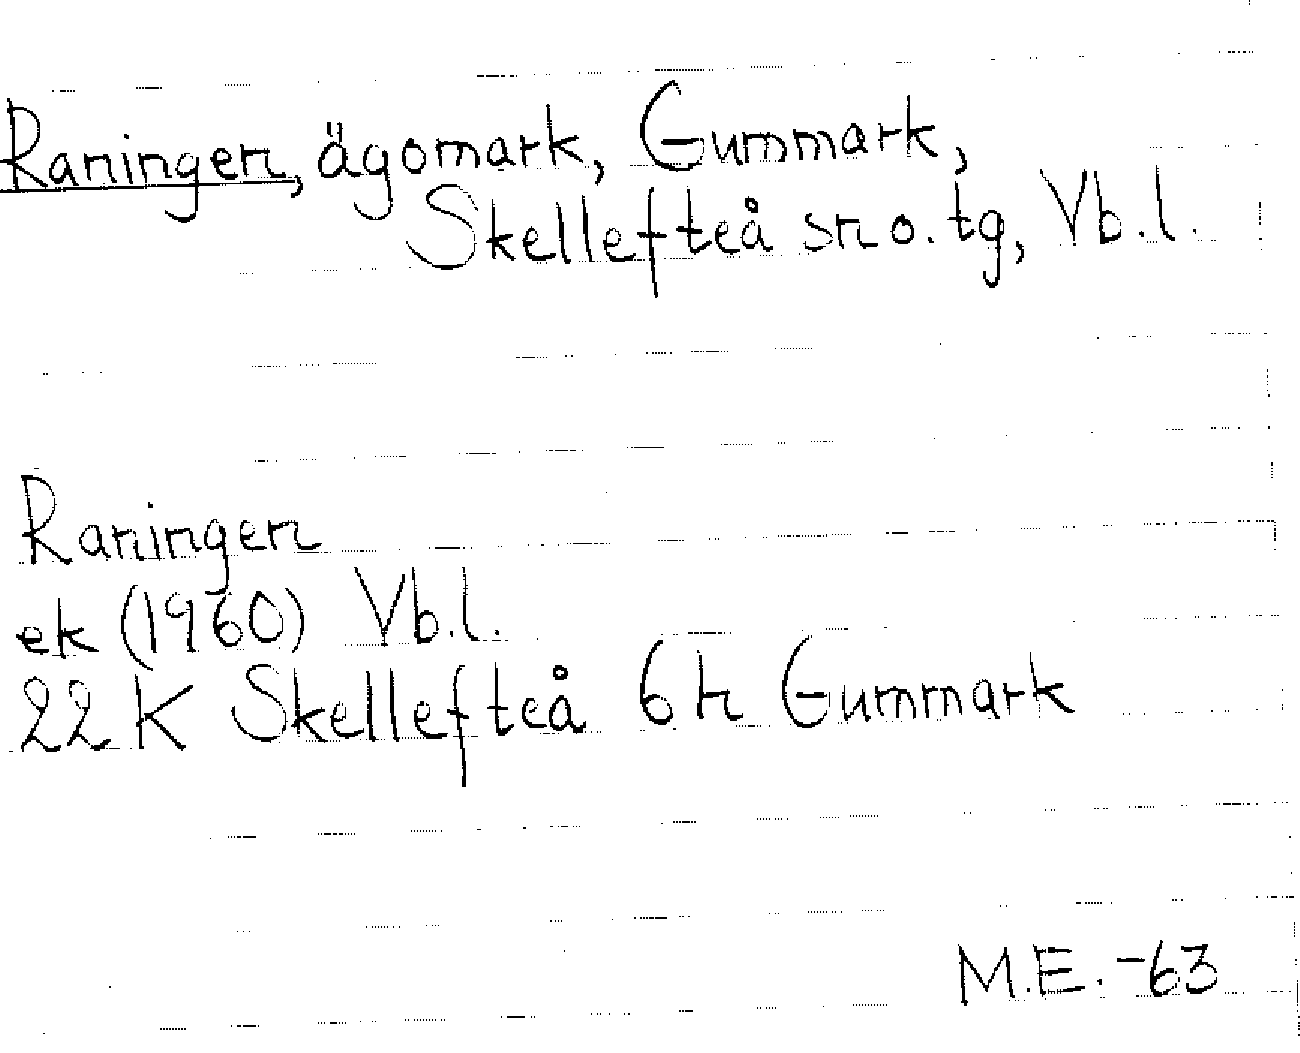 Raningen, ägomark, Gummark,
Skellefteå sn o. tg, Vb.l.
Raningen
ek (1960) Vb.l.
22 K Skellefteå 6 h Gummark
M.E. -63